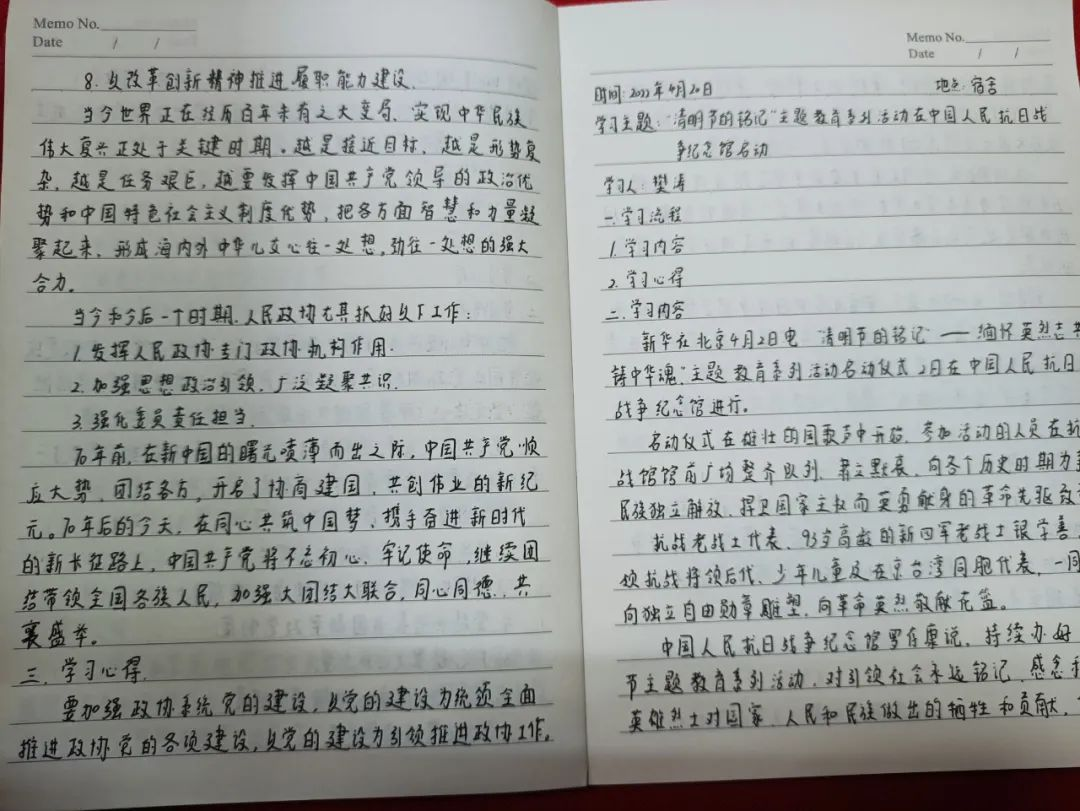 Memo No.
Date / /
8. 以改革创新精神推进履职能力建设.
当今世界正在经历百年未有之大变局、实现中华民族
伟大复兴正处于关键时期。越是接近目标、越是形势复
杂,越是任务艰巨,越要发挥中国共产党领导的政治优
势和中国特色社会主义制度优势,把各方面智慧和力量凝
聚起来,形成海内外中华儿女心往一处想,劲往一处想的强大
合力。
当今和今后一个时期.人民政协尤其抓好以下工作:
1.发挥人民政协专门政协机构作用.
2.加强思想政治引领、广泛凝聚共识.
3.强化委员责任担当.
70年前,在新中国的曙光喷薄而出之际,中国共产党顺
应大势、团结各方,开启了协商建国、共创伟业的新纪
元。70年后的今天,在同心共筑中国梦、携手奋进新时代
的新长征路上,中国共产党将不忘初心、牢记使命,继续团
结带领全国各族人民,加强大团结大联合,同心同德、共
襄盛举。
三、学习心得.
要加强政协系统党的建设,以党的建设为统领全面
推进政协党的各项建设,以党的建设为引领推进政协工作。
Memo No.
Date / /
时间:2022年4月20日 地点:宿舍
学习主题:“清明节的铭记”主题教育系列活动在中国人民抗日战
争纪念馆启动
学习人:樊涛
一.学习流程
1.学习内容
2.学习心得
二.学习内容
新华社北京4月2日电 清明节的铭记——缅怀英烈志 共
铸中华魂”主题教育系列活动启动仪式2日在中国人民抗日
战争纪念馆进行。
启动仪式在雄壮的国歌声中开始.参加活动的人员在抗
战馆馆前广场整齐队列、肃立默哀、向各个历史时期为
民族独立解放、捍卫国家主权而英勇献身的革命先驱致
抗战老战士代表、93岁高龄的新四军老战士
领抗战将领后代、少年儿童及在京台湾同胞代表,一同
向独立自由勋章雕塑、向革命英烈敬献花篮。
中国人民抗日战争纪念馆罗存康说,持续办好
节主题教育系列活动.对引领社会永远铭记、感念
英雄烈士对国家、人民和民族做出的牺牲和贡献,